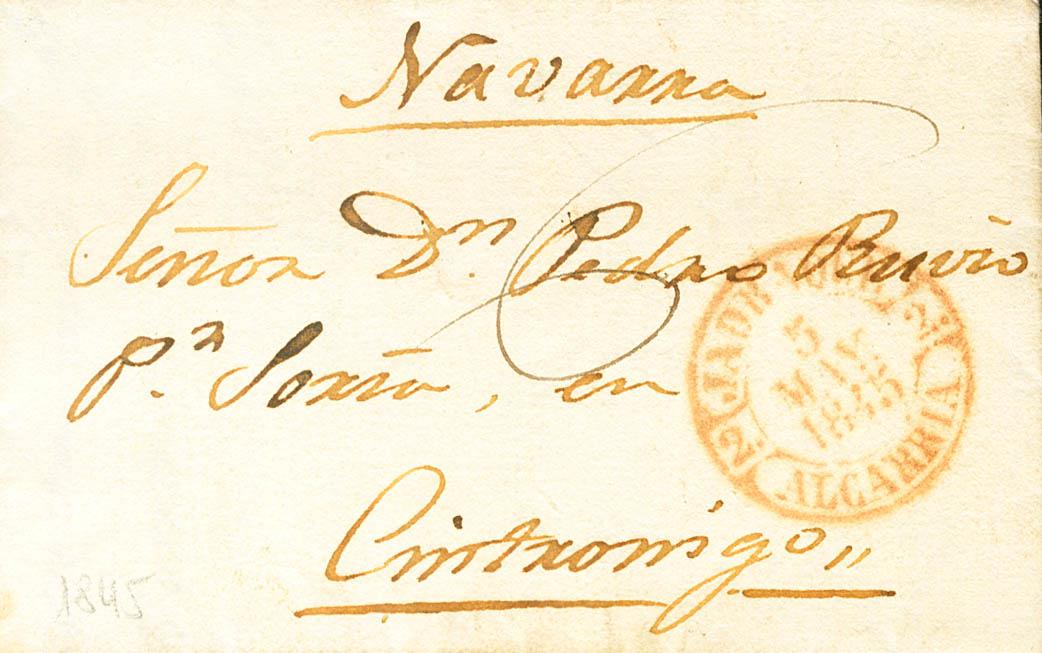 Navarra
Señor Dn. Pedro Ruvio
Pr. Soria, en
Cintronigo
JADRAQUE
5
MAY
1845
ALCARRIA
1845